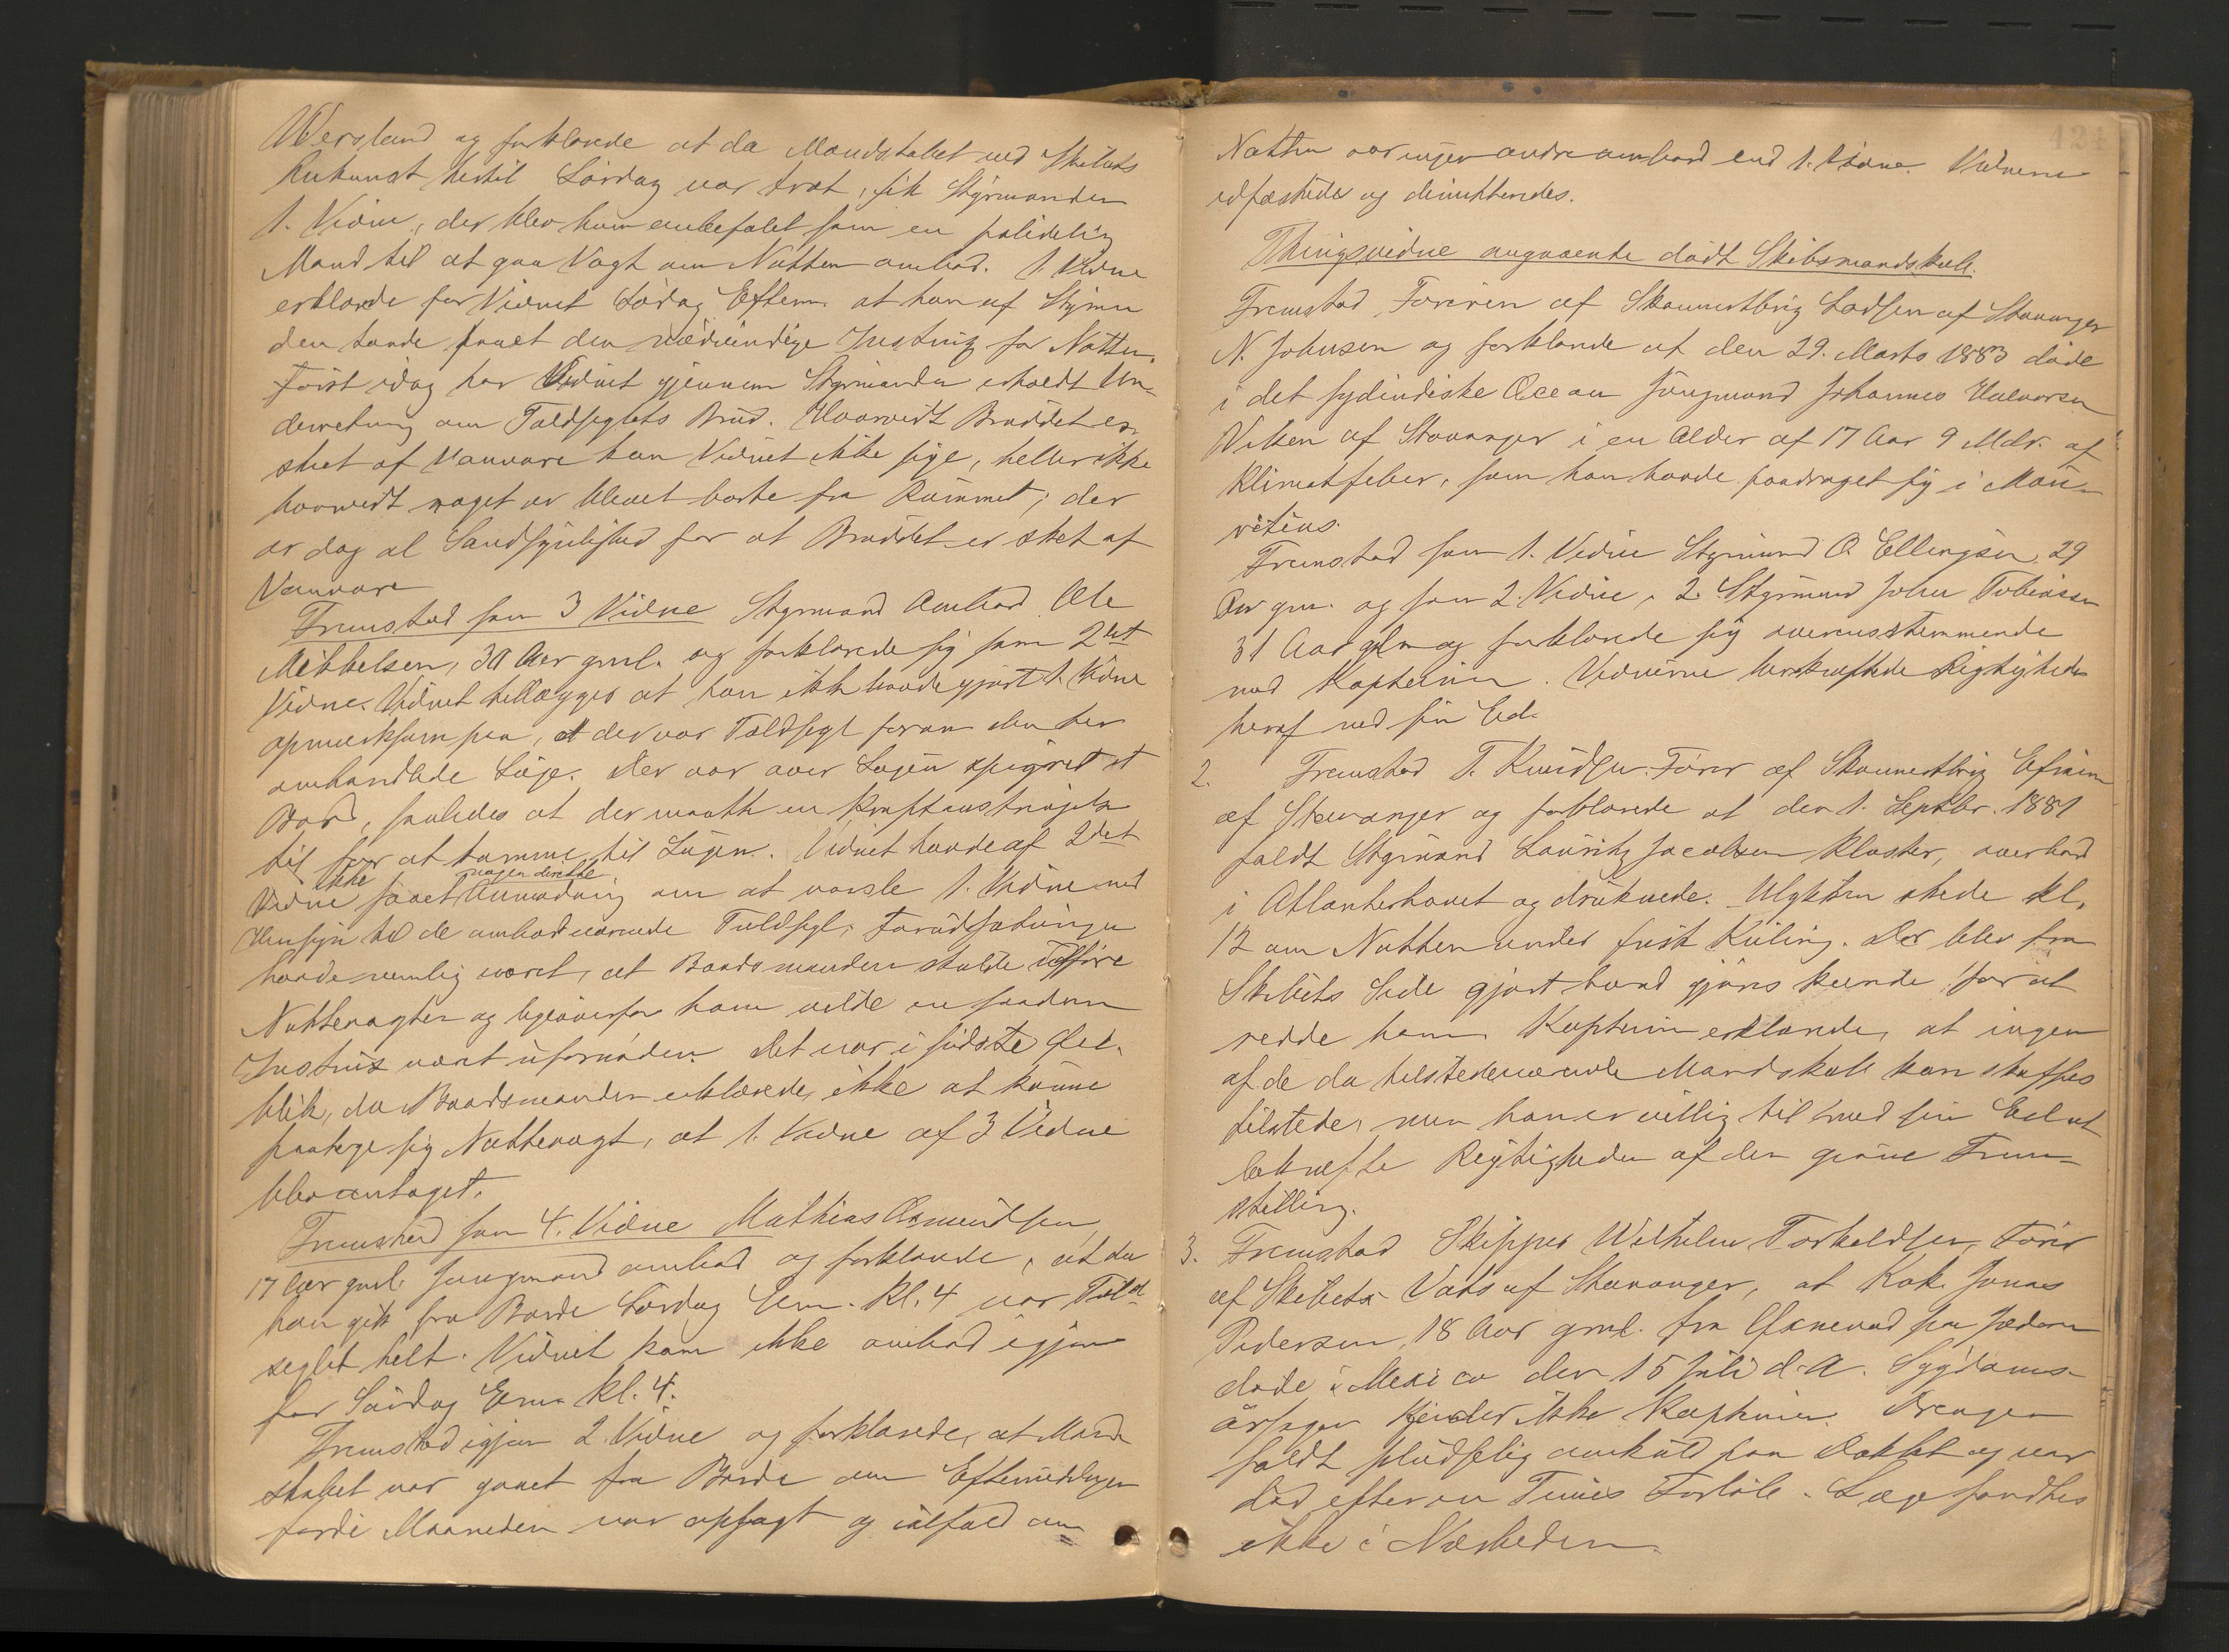 Wersland og forklarede at da Mandskabet ved Skibets
Ankomst hertil Lørdag var træt, fik Styrmanden
1. Vidne, der blev ham anbefalet som en palidelig
Mand til at gaa Vagt om Natten ombord. 1. Vidne
erklærede for Vidnet Lørdag Efterm. at han af Styrman
den havde faaet den nødvendige Instrux for Natten.
Først idag har Vidnet gjennem Styrmanden erholdt Un-
derretning om Toldseglets Brud. Hvorvidt Bruddet er
sket af Vanvare kan Vidnet ikke sige, heller ikke
hvorvidt noget er blevet borte fra Rummet; der
er dog al Sandsynlighed for at Bruddet er sket af
Vanvare
Fremstod som 3 Vidne Styrmand Ombord Ole
Mikkelsen, 30 Aar gml. og forklarede sig som 2det
Vidne. Vidnet tillægger at han ikke havde gjort 1. Vidne
opmerksom paa, at der var Toldsegl foran den her
omhandlede Luge. Der var over Lugen spigret et
Bord, saaledes at der maatte en Kraftanstrengelse
til for at komme til Lugen. Vidnet havde af 2det
Vidne ikke faaet nogen direkte Anmodning om at varsle 1. Vidne med
Hensyn til de ombordværende Toldsegl, Forudsætningen
havde nemlig været, at Baadsmanden skulde udføre
Nattevagten og ligeoverfor ham vilde en saadan
Instrux været ufornøden. Det var i sidste Øie-
blik, da Baadsmanden erklærede, ikke at kunne
paatage sig Nattevagt, at 1. Vidne af 3 Vidne
blev antaget.
Fremstod som 4. Vidne Mathias Asmundsen,
17 Aar gml. Jungmand ombord og forklarede, at da
han gik fra Borde Lørdag Em. Kl. 4 var Told-
seglet helt. Vidnet kom ikke ombord igjen
før Søndag Em. Kl. 4.
Fremstod igjen 2. Vidne og forklarede, at Mand
skabet var gaaet fra Borde om Eftermiddagen
fordi Maaneden var opsagt og ialfald om
Natten var ingen andre ombord end 1. Vidne. Vidnerne
edfæstedes og dimitteredes.
Thingsvidne angaaende dødt Skibsmandskab.
Fremstod Føreren af Skonnertbrig Lodsen af Stavanger
N. Johnsen og forklarede at den 29. Marts 1883 døde
i det sydindiske Ocean Jungmand Johannes Halvorsen
Nilsen af Stavanger i en Alder af 17 Aar 9 Mdr. af
Klimatfeber, som han havde paadraget sig i Mau-
ritius.
Fremstod som 1. Vidne Styrmand O. Ellingsen, 29
Aar gml. og som 2. Vidne, 2. Styrmand John Tobiassen
31 Aar glm og forklarede sig overensstemmende
med Kapteinen. Vidnerne bekræftede Rigtigheden
heraf med sin Ed.
2. Fremstod T. Knudsen Fører af Skonnertbrig Efraim
af Stavanger og forklarede at den 1. Septbr. 1881
faldt Styrmand Lauritz Jacobsen Kloster, overbord
i Atlanterhavet og druknede. Ulykken skede Kl.
12 om Natten under frisk Kuling. Der blev fra
Skibets Side gjort hvad gjøres kunde for at
redde ham. Kapteinen erklærede, at ingen
af de da tilstedeværende Mandskab kan skaffes
tilstede, men han er villig til med sin Eed at
bekræfte Rigtigheden af den givne Frem-
stilling.
3. Fremstod Skipper Wilhelm Torkeldsen, Fører
af Skibet Vats af Stavanger, at Kok Jonas
Pedersen, 18 Aar gml. fra Oxnevad paa Jædern
døde i Mexico den 15 Juli d. A. Sygdoms-
årsagen kjender ikke Kapteinen. Drengen
faldt pludselig omkuld paa Dækket og var
død efter en Times Forløb. Læge fandtes
ikke i Nærheden.